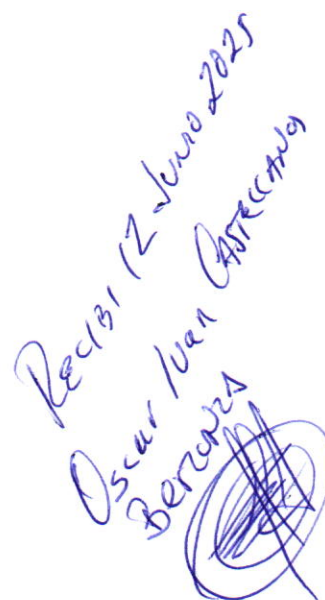 Recibi 12 Junio 2025
Oscar Ivan Castellanos